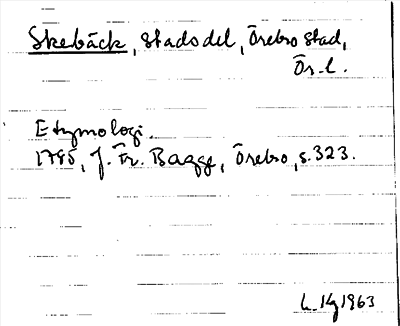 Skebäck, stadsdel, Örebro stad,
Ör. l.
Etymologi.
1785, J. Fr. Bagge, Örebro, s. 323.
1963